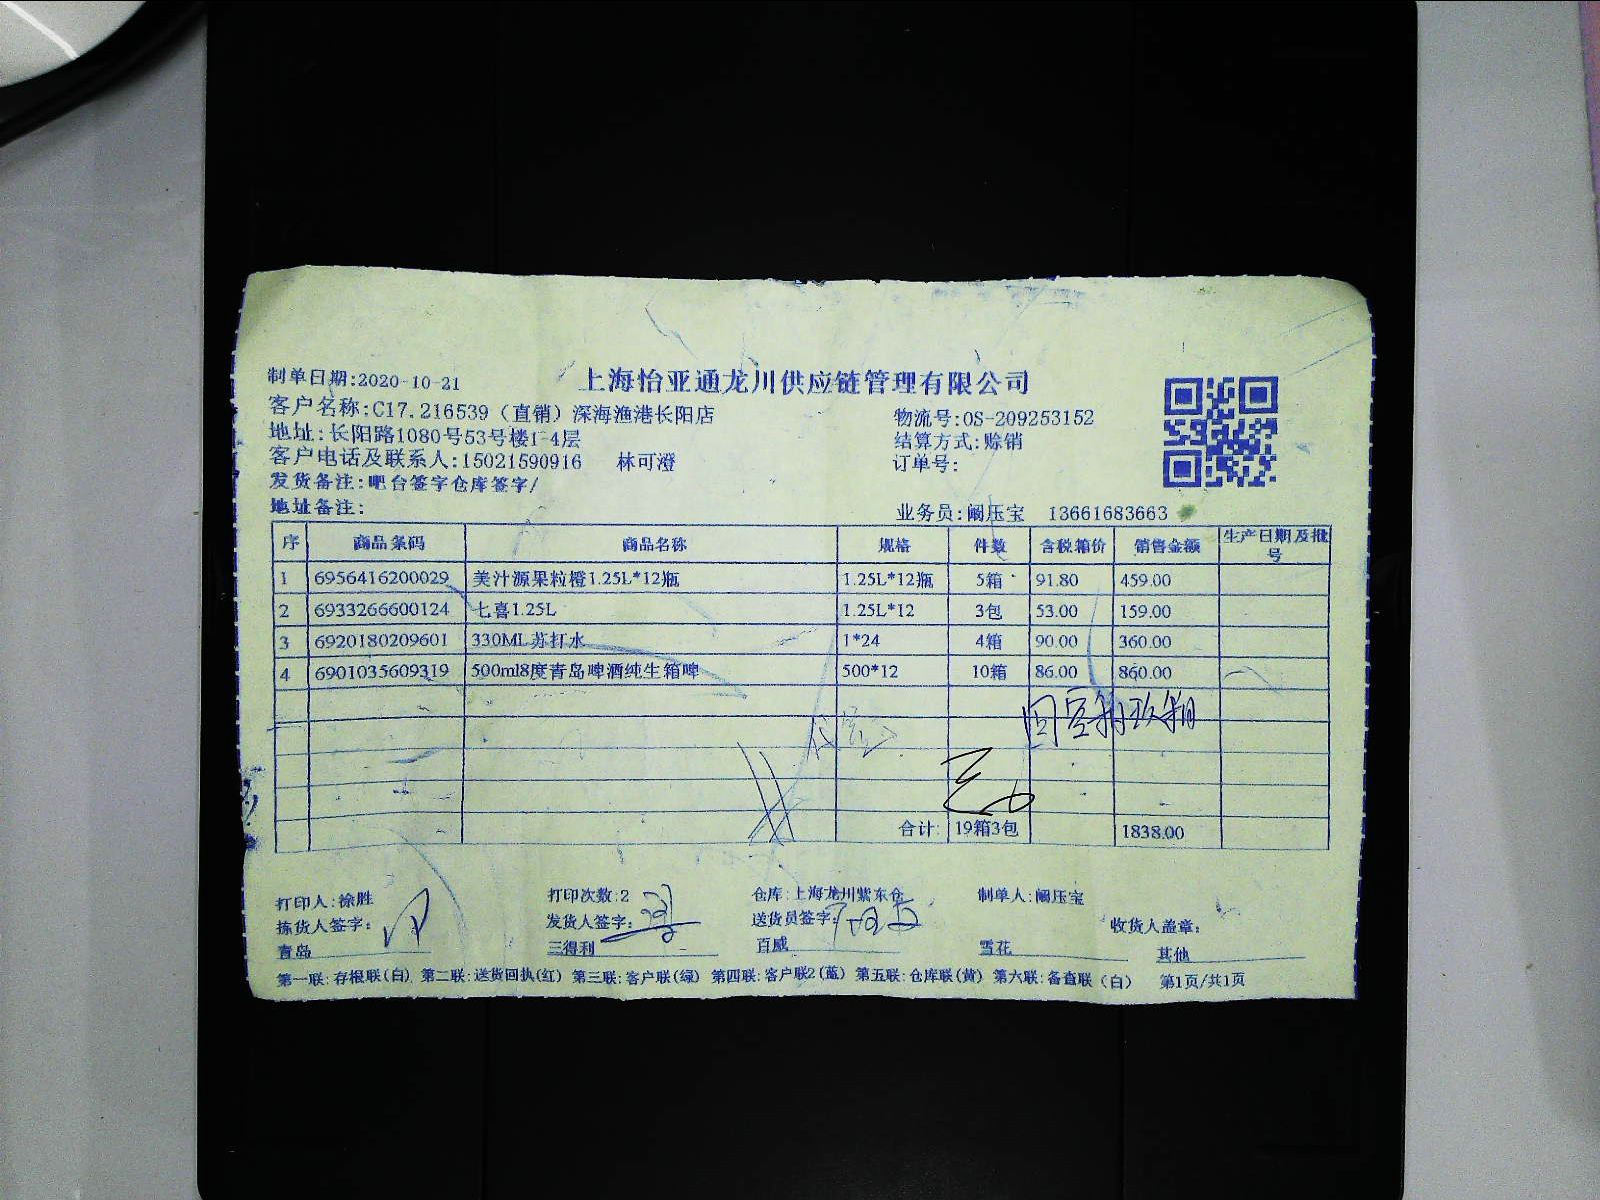 上海怡亚通龙川供应链管理有限公司
制单日期:2020-10-21
客户名称:C17.216539（直销）深海渔港长阳店 物流号:OS-209253152
地址:长阳路1080号53号楼1-4层 结算方式:赊销
客户电话及联系人:15021590916 林可澄 订单号:
发货备注:吧台签字仓库签字/
地址备注: 业务员:阚压宝 13661683663
序 商品条码 商品名称 规格 件数 含税箱价 销售金额 生产日期及批号
1 6956416200029 美汁源果粒橙1.25L*12瓶 1.25L*12瓶 5箱 91.80 459.00
2 6933266600124 七喜1.25L 1.25L*12 3包 53.00 159.00
3 6920180209601 330ML苏打水 1*24 4箱 90.00 360.00
4 6901035609319 500ml8度青岛啤酒纯生箱啤 500*12 10箱 86.00 860.00
合计: 19箱3包 1838.00
打印人:徐胜 打印次数:2 仓库:上海龙川紫东仓 制单人:阚压宝
拣货人签字: 发货人签字: 送货员签字: 收货人盖章:
青岛 三得利 百威 雪花 其他
第一联:存根联(白) 第二联:送货回执(红) 第三联:客户联(绿) 第四联:客户联2(蓝) 第五联:仓库联(黄) 第六联:备查联(白) 第1页/共1页